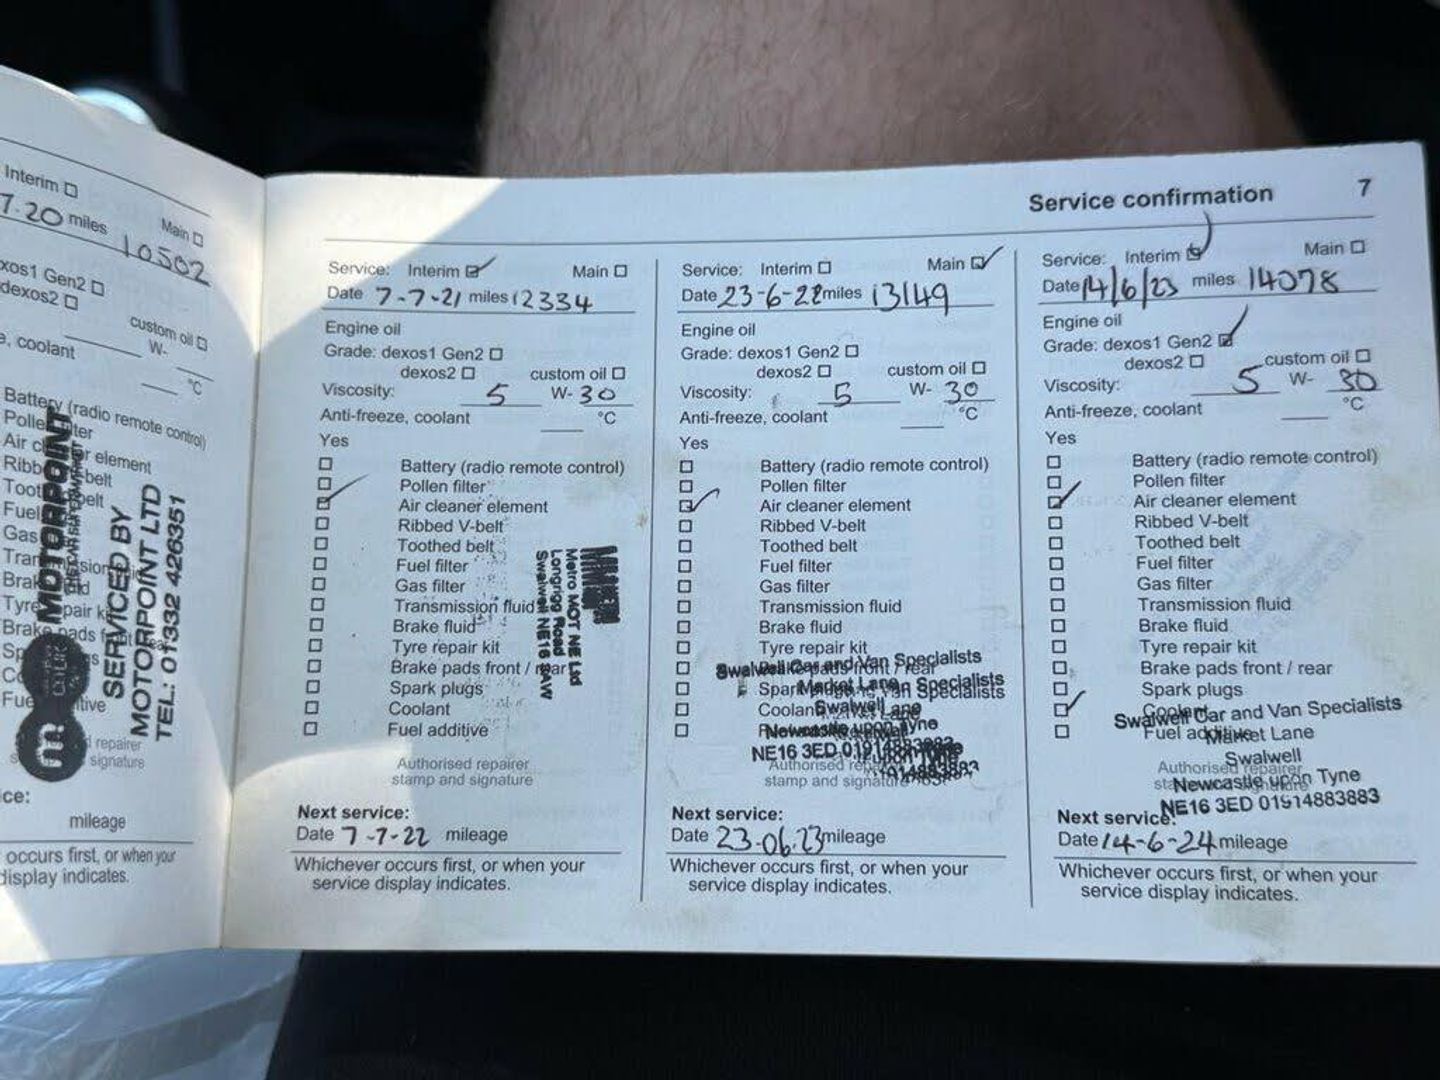 Interim ☐
Main ☐
7.20 miles 10502
xos1 Gen2 ☐
dexos2 ☐
custom oil ☐
W-
e, coolant
°C
Battery (radio remote control)
MOTORPOINT
SERVICED BY
MOTORPOINT LTD
TEL: 01332 426351
repairer
signature
ce:
mileage
occurs first, or when your
display indicates.
Service confirmation 7
Service: Interim ☑ Main ☐
Date 7-7-21 miles 12334
Engine oil
Grade: dexos1 Gen2 ☐
dexos2 ☐ custom oil ☐
Viscosity: 5 W- 30
Anti-freeze, coolant °C
Yes
☐ Battery (radio remote control)
☐ Pollen filter
☑ Air cleaner element
☐ Ribbed V-belt
☐ Toothed belt
☐ Fuel filter
☐ Gas filter
☐ Transmission fluid
☐ Brake fluid
☐ Tyre repair kit
☐ Brake pads front / rear
☐ Spark plugs
☐ Coolant
☐ Fuel additive
Metro MOT NE Ltd
Longrigg Road
Swalwell NE16
Authorised repairer
stamp and signature
Next service:
Date 7-7-22 mileage
Whichever occurs first, or when your
service display indicates.
Service: Interim ☐ Main ☑
Date 23-6-22 miles 13149
Engine oil
Grade: dexos1 Gen2 ☐
dexos2 ☐ custom oil ☐
Viscosity: 5 W- 30
Anti-freeze, coolant °C
Yes
☐ Battery (radio remote control)
☐ Pollen filter
☑ Air cleaner element
☐ Ribbed V-belt
☐ Toothed belt
☐ Fuel filter
☐ Gas filter
☐ Transmission fluid
☐ Brake fluid
☐ Tyre repair kit
☐ Brake pads front / rear
☐ Spark
☐ Coolant
☐
Swalwell Car and Van Specialists
Market Lane
Swalwell
Newcastle upon Tyne
NE16 3ED 01914883883
Authorised repairer
stamp and signature
Next service:
Date 23-06.23 mileage
Whichever occurs first, or when your
service display indicates.
Service: Interim ☑ Main ☐
Date 14/6/23 miles 14078
Engine oil
Grade: dexos1 Gen2 ☑
dexos2 ☐ custom oil ☐
Viscosity: 5 W- 30
Anti-freeze, coolant °C
Yes
☐ Battery (radio remote control)
☐ Pollen filter
☑ Air cleaner element
☐ Ribbed V-belt
☐ Toothed belt
☐ Fuel filter
☐ Gas filter
☐ Transmission fluid
☐ Brake fluid
☐ Tyre repair kit
☐ Brake pads front / rear
☐ Spark plugs
☑ Coolant
☐ Fuel additive
Swalwell Car and Van Specialists
Market Lane
Swalwell
Newcastle upon Tyne
NE16 3ED 01914883883
Authorised repairer
Next service:
Date 14-6-24 mileage
Whichever occurs first, or when your
service display indicates.